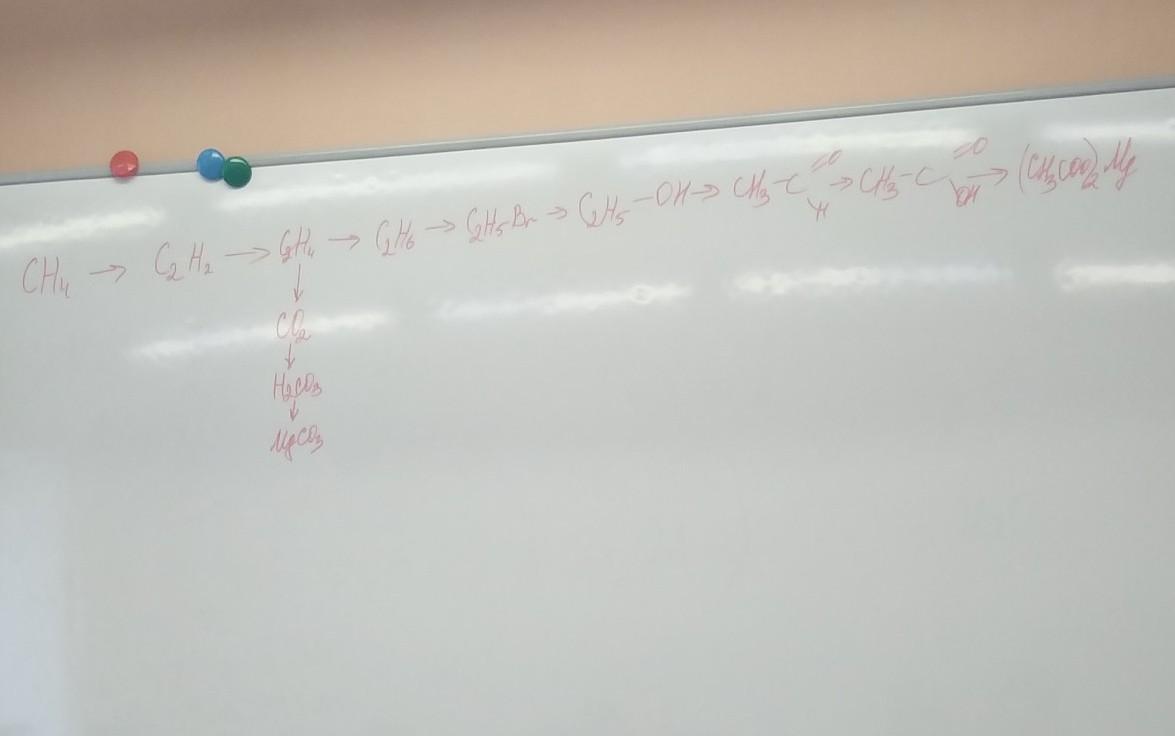 CH₄ → C₂H₂ → C₂H₄ → C₂H₆ → C₂H₅Br → C₂H₅-OH → CH₃-C=O\H → CH₃-C=O\OH → (CH₃COO)₂Mg
↓
CO₂
↓
H₂CO₃
↓
MgCO₃